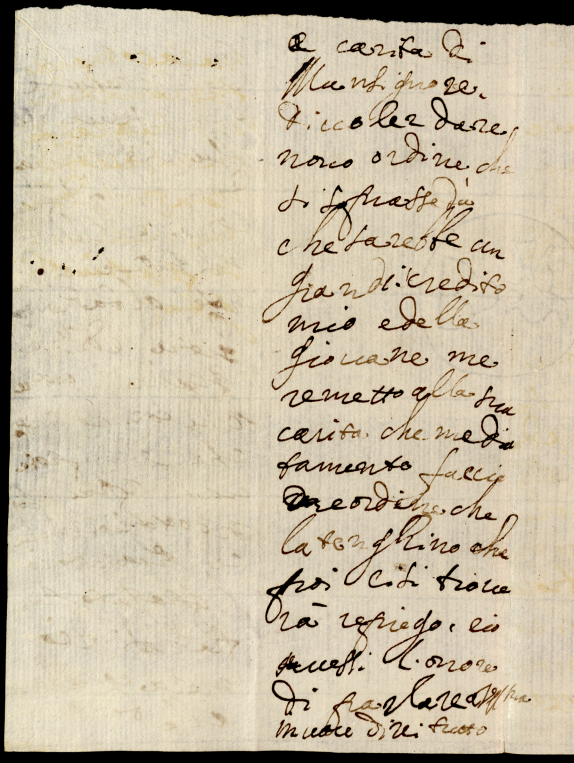 e carita di
Monsignore.
di voler dare
novo ordine che
si
che sarebbe un
gran discredito
mio e della
giovane me
remetto alla sua
carita che me dia
tamento faccia
dare ordine che
la tenghino che
poi ci si trove
rà repiego. e io
avessi l'onore
di parlare
direi tutto